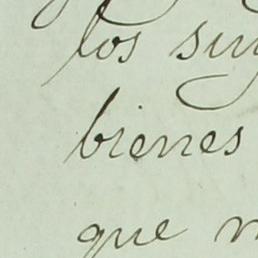 los
bienes
que